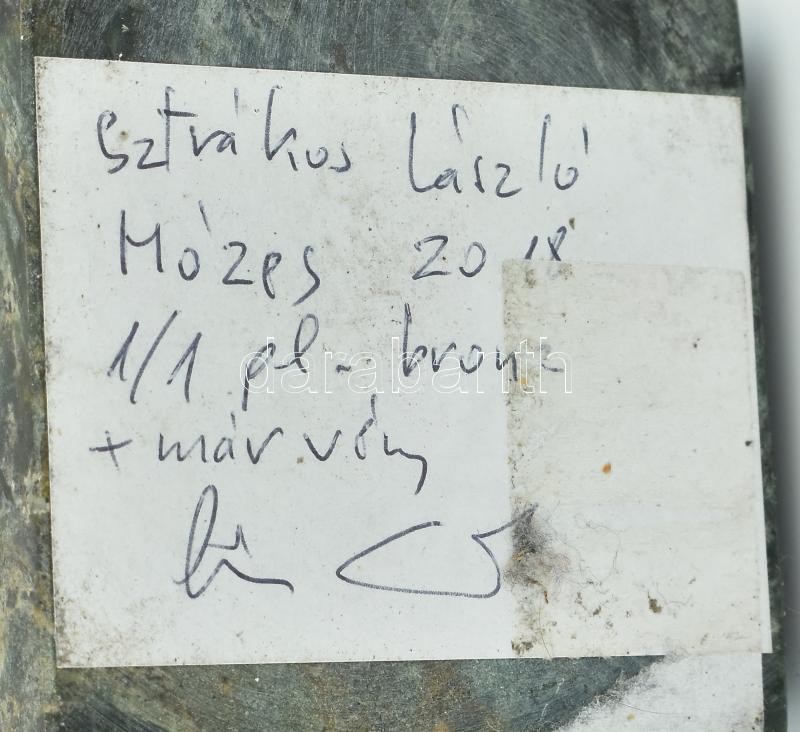 Sztrákos László
Mózes 2018
1/1 pl. bronz
+ márvány
darabanth